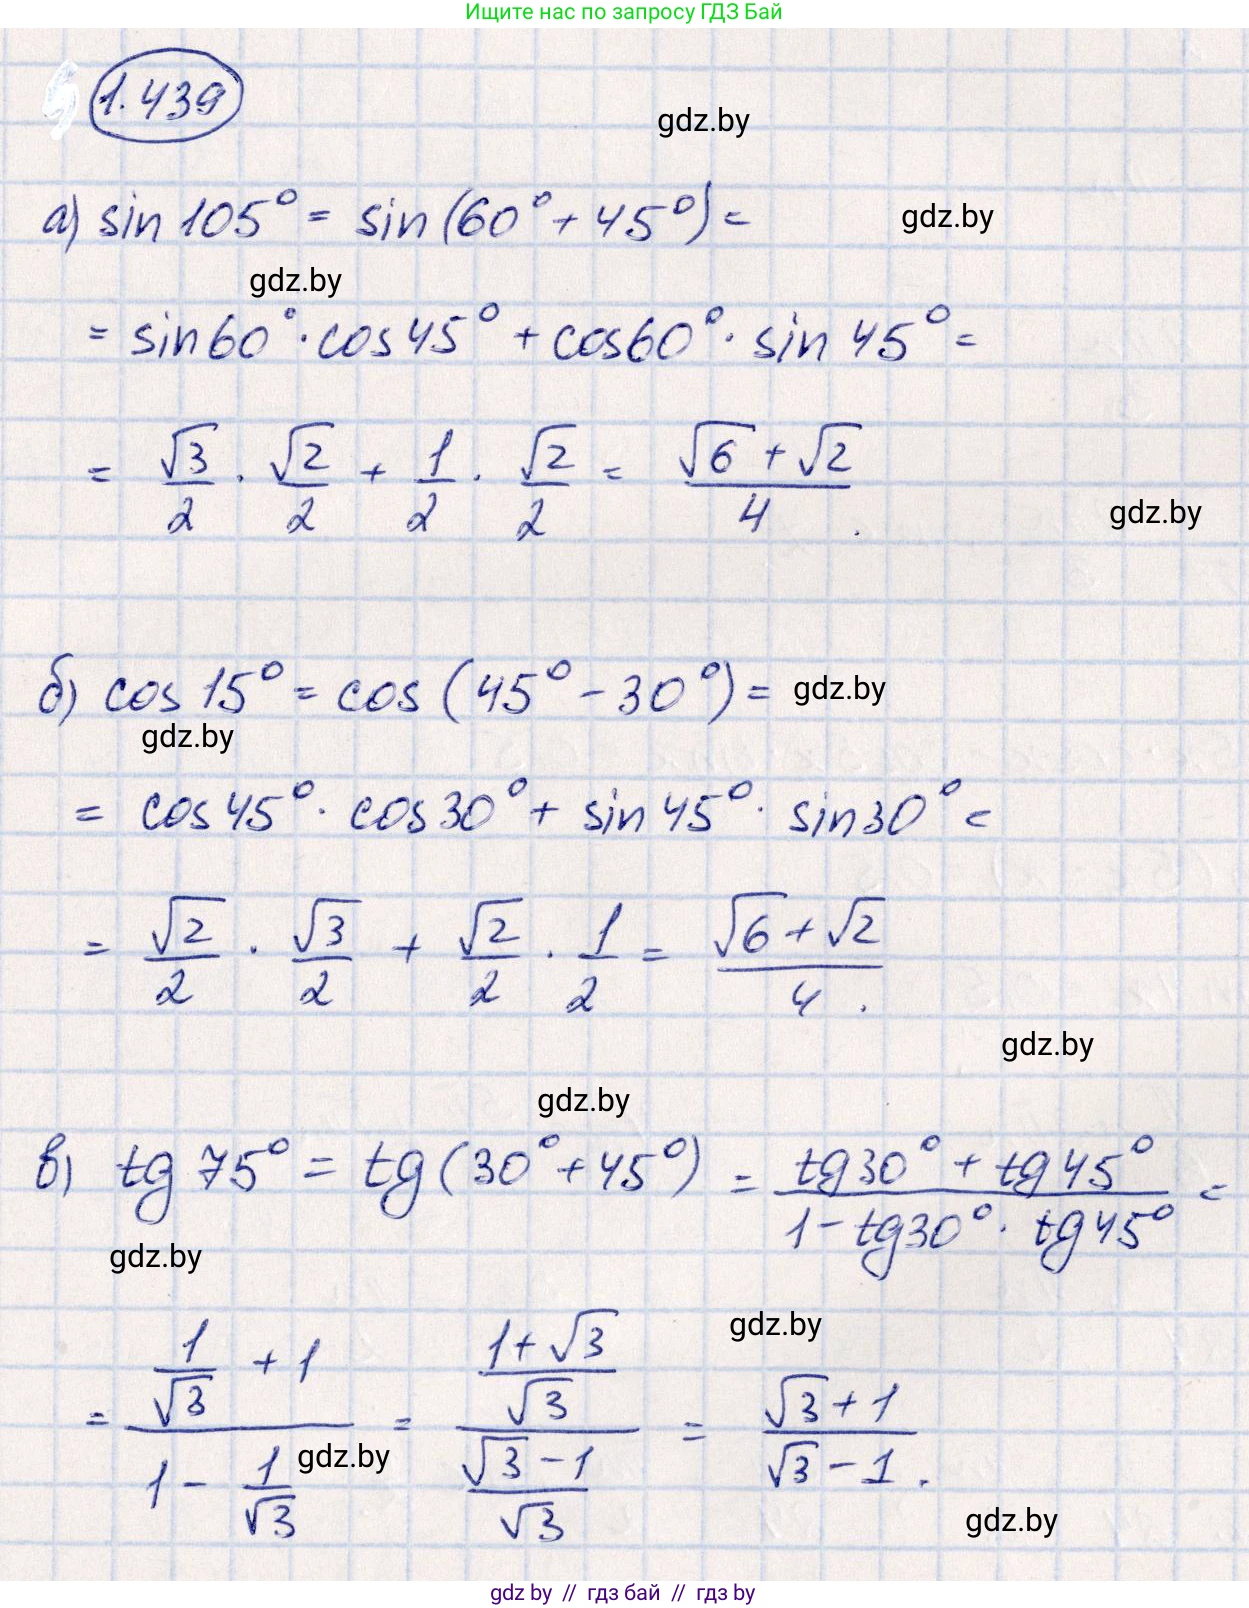 Ищите нас по запросу ГДЗ Бай
1.439
gdz.by
а) sin 105° = sin (60° + 45°) =
gdz.by
gdz.by
= sin 60° · cos 45° + cos 60° · sin 45° =
= √3/2 · √2/2 + 1/2 · √2/2 = (√6 + √2)/4.
gdz.by
б) cos 15° = cos (45° - 30°) =
gdz.by
gdz.by
= cos 45° · cos 30° + sin 45° · sin 30° =
= √2/2 · √3/2 + √2/2 · 1/2 = (√6 + √2)/4.
gdz.by
gdz.by
в) tg 75° = tg (30° + 45°) = (tg 30° + tg 45°)/(1 - tg 30° · tg 45°) =
gdz.by
gdz.by
= (1/√3 + 1)/(1 - 1/√3) = ((1 + √3)/√3)/((√3 - 1)/√3) = (√3 + 1)/(√3 - 1).
gdz.by
gdz.by
gdz by // гдз бай // гдз by